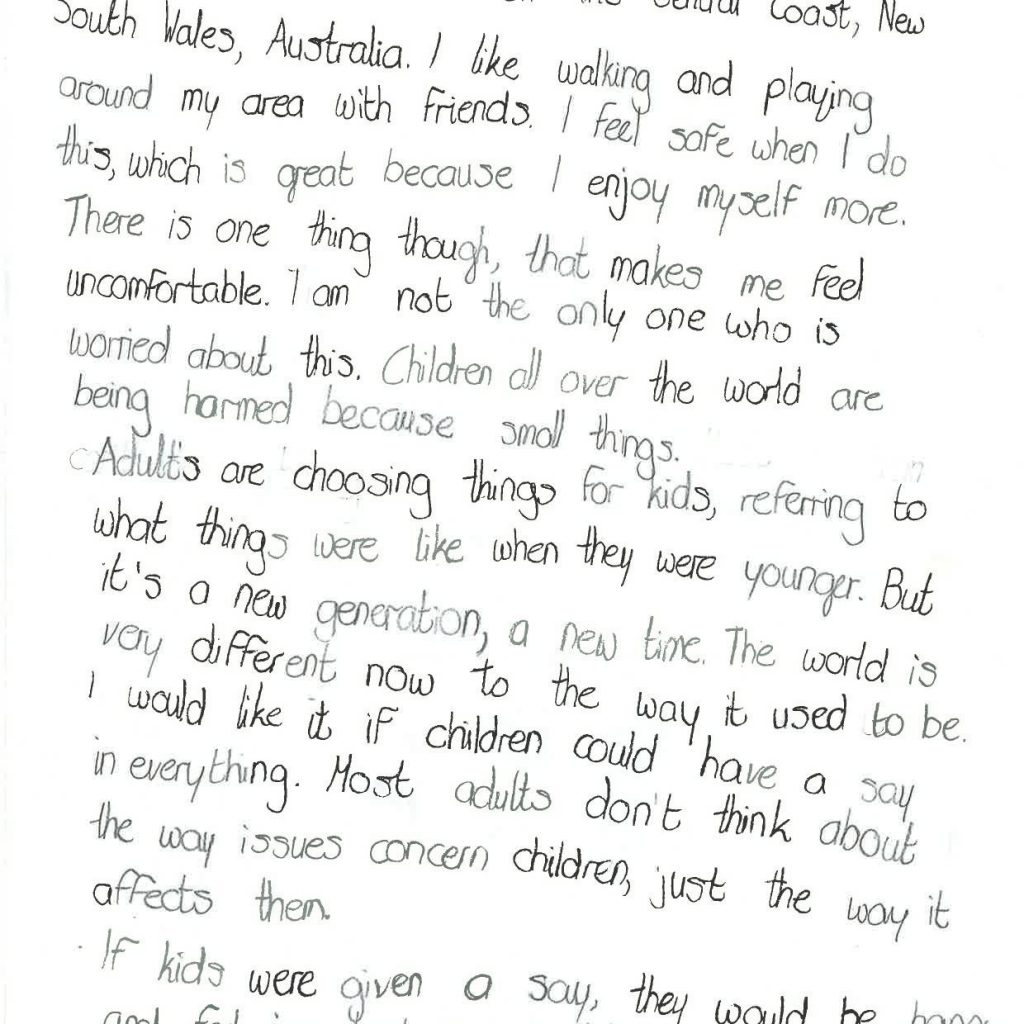 Coast, New
South Wales, Australia. I like walking and playing
around my area with friends. I feel safe when I do
this, which is great because I enjoy myself more.
There is one thing though, that makes me feel
uncomfortable. I am not the only one who is
worried about this. Children all over the world are
being harmed because small things.
Adults are choosing things for kids, referring to
what things were like when they were younger. But
it's a new generation, a new time. The world is
very different now to the way it used to be.
I would like it if children could have a say
in everything. Most adults don't think about
the way issues concern children, just the way it
affects them.
If kids were given a say, they would be
and